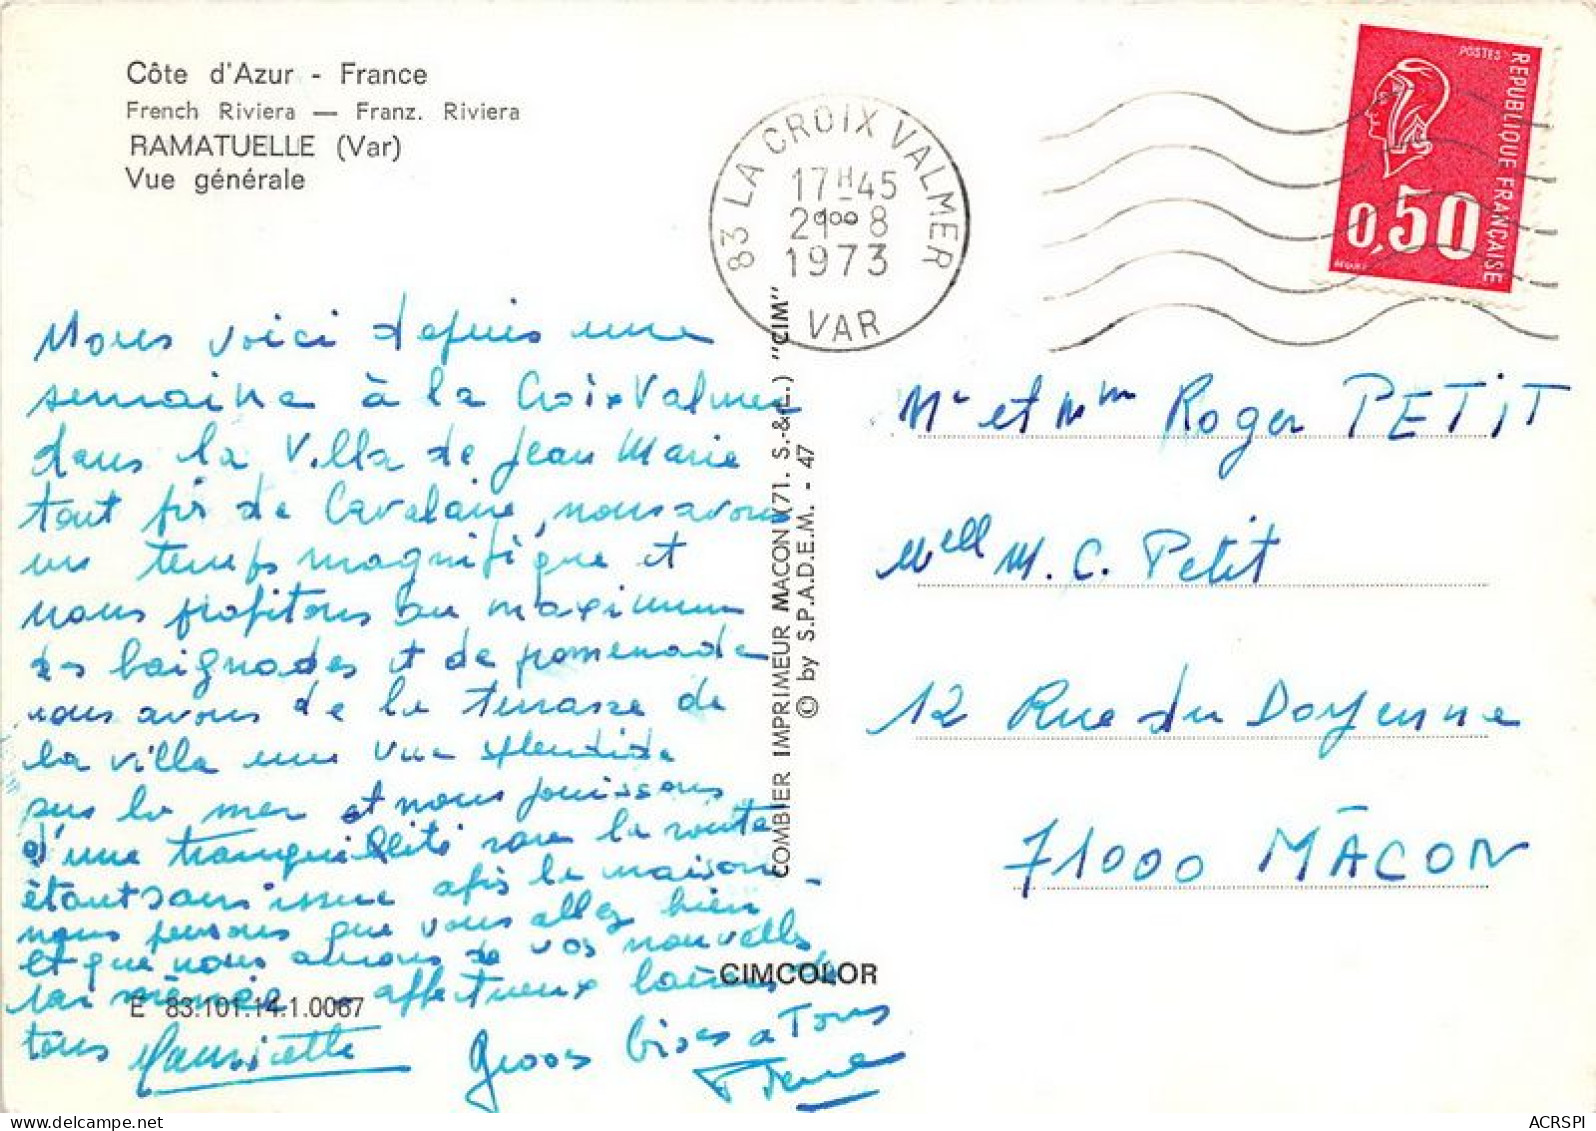 Côte d'Azur - France
French Riviera — Franz. Riviera
RAMATUELLE (Var)
Vue générale
83 LA CROIX VALMER
17H45
8
1973
VAR
POSTES
REPUBLIQUE FRANÇAISE
0,50
Nous voici depuis une
semaine à la Croix Valmer
dans la Villa de Jean Marie
tout près de Cavalaire, nous avons
un temps magnifique et
nous profitons au maximum
des baignades et de promenade
nous avons de la terrasse de
la villa une vue splendide
sur la mer et nous jouissons
d'une tranquillité rare la route
étant sans issue après la maison -
nous pensons que vous allez bien
et que nous aurons de vos nouvelles
affectueux baisers de
tous Mauricette
Grosses bises a Tous
Pierre
COMBIER IMPRIMEUR MACON (71. S.-&-L.) "CIM"
© by S.P.A.D.E.M. - 47
Mr et Mme Roger PETIT
Melle M. C. Petit
12 Rue du Doyenne
71000 MÂCON
CIMCOLOR
E 83.101.14.1.0067
ACRSPI